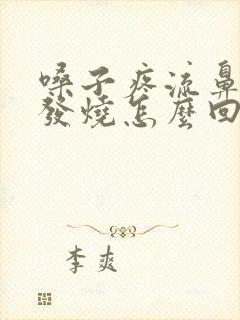 嗓子疼流鼻
發燒怎麼回
李爽